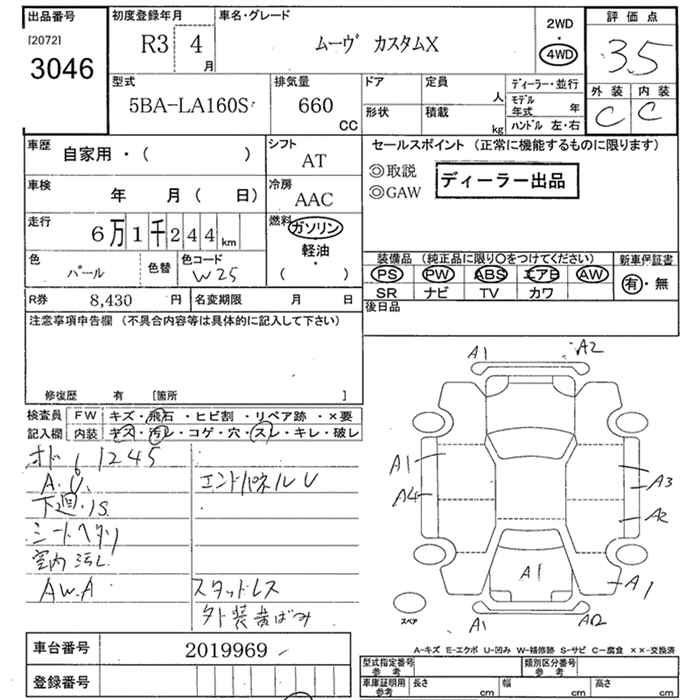 出品番号
[2072]
3046
初度登録年月
R3 4月
車名・グレード
ムーヴ カスタムX
2WD
・
4WD
評価点
3.5
外装 内装
C C
型式
5BA-LA160S
排気量
660
CC
ドア
定員
人
形状
積載
kg
ディーラー・並行
モデル年式 年
ハンドル 左・右
車歴
自家用・( )
シフト
AT
セールスポイント (正常に機能するものに限ります)
◎取説
◎GAW
ディーラー出品
車検
年 月( 日)
冷房
AAC
走行
6万1千244km
燃料
ガソリン
軽油
( )
色
パール
色替
色コード
W25
装備品 (純正品に限り○をつけてください)
PS PW ABS エアB AW
SR ナビ TV カワ
新車保証書
有・無
R券 8,430 円
名変期限 月 日
後日品
注意事項申告欄 (不具合内容等は具体的に記入して下さい)
修復歴 有 [箇所 ]
検査員記入欄
FW キズ・飛石・ヒビ割・リペア跡・×要
内装 キズ・汚レ・コゲ・穴・スレ・キレ・破レ
オド61245
A.U.
エンドパネルU
下廻.S
シートヘタリ
室内汚レ
AW.A
スタッドレス
外装黄ばみ
A1 A2
A1
A4
A3
A2
A1
A1
A1 A2
スペア
A-キズ E-エクボ U-凹み W-補修跡 S-サビ C-腐食 ××-交換済
車台番号
2019969
登録番号
型式指定番号 参考
類別区分番号 参考
車庫証明用 参考
長さ cm
幅 cm
高さ cm